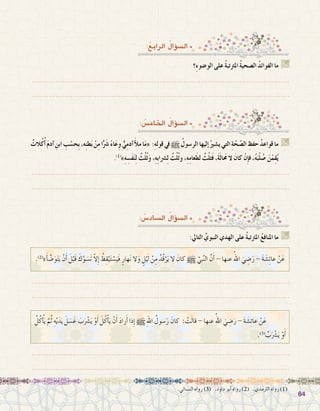 السؤال الرابع
ما الفوائد الصحية المترتبة على الوضوء؟
السؤال الخامس:
ما قواعد حفظ الصّحّة التي يشير إليها الرسول ﷺ في قوله: «مَا مَلأَ آدَمِيٌّ وِعَاءً شَرًّا مِنْ بَطْنِهِ، بحسْبِ ابنِ آدمَ أُكُلاتٌ
يُقِمْنَ صُلْبَهُ، فإنْ كانَ لا مَحَالَةَ، فثُلُثٌ لِطعامِهِ، وثُلُثٌ لِشرابِهِ، وثُلُثٌ لِنفَسِهِ»(1).
السؤال السادس:
ما المنافع المترتبة على الهدي النبوي التالي:
عَنْ عائشةَ – رَضِيَ اللهُ عنها – أَنَّ النَّبِيَّ ﷺ كانَ لا يَرْقُدُ مِنْ لَيْلٍ ولا نَهارٍ فَيَسْتَيْقِظُ إلاَّ تَسَوَّكَ قَبْلَ أَنْ يَتَوَضَّأَ»(2).
عَنْ عائشةَ – رَضِيَ اللهُ عنها – قالتْ: كانَ رسولُ اللهِ ﷺ إذا أرادَ أَنْ يَأْكُلَ أَوْ يَشْرَبَ غَسَلَ يَدَيْهِ ثُمَّ يَأْكُلُ
أَوْ يَشْرَبُ(3).
(1) رواه الترمذي. (2) رواه أبو داود. (3) رواه النسائي.
64